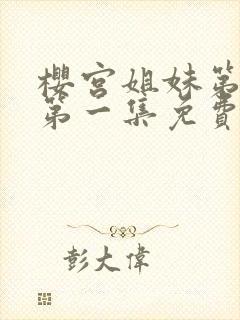 櫻宮姐妹第
第一集免費
彭大偉